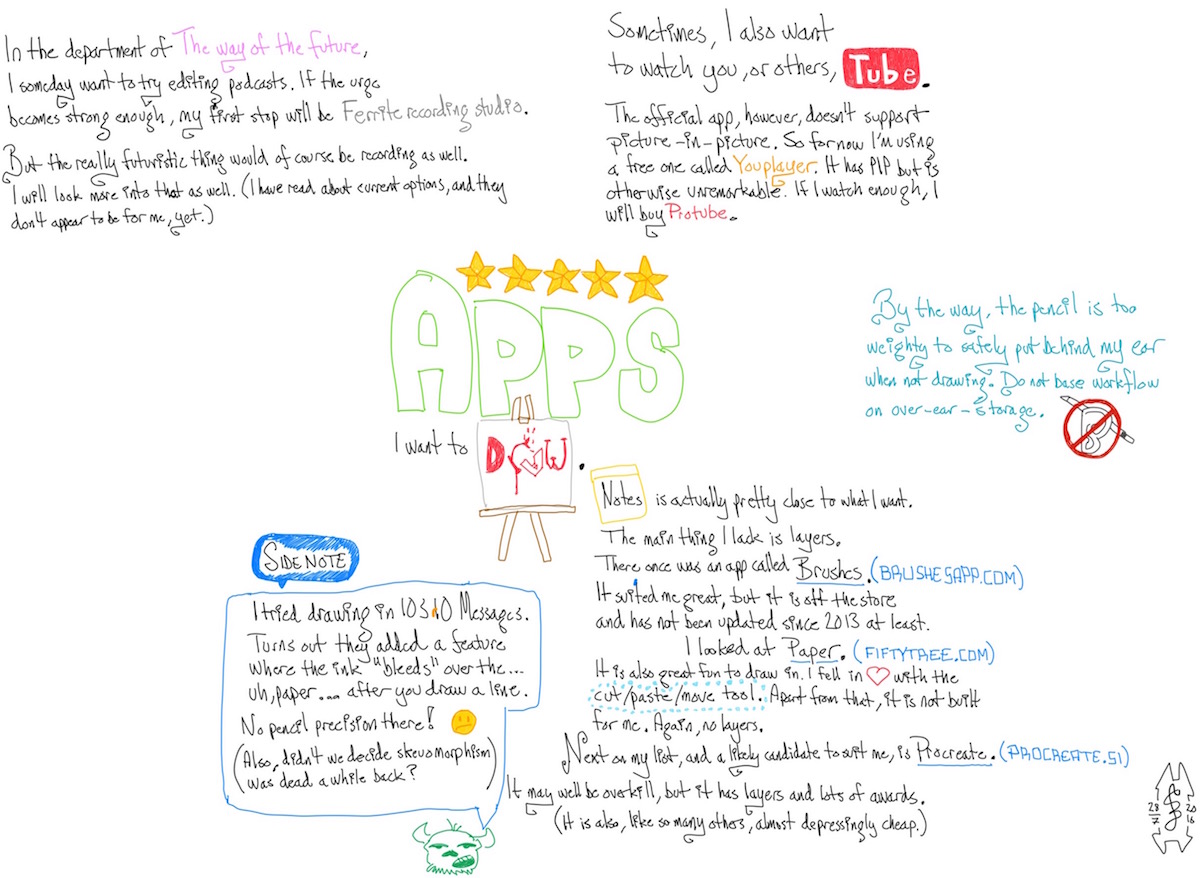 In the department of The way of the future,
I someday want to try editing podcasts. If the urge
becomes strong enough, my first stop will be Ferrite recording studio.
But the really futuristic thing would of course be recording as well.
I will look more into that as well. (I have read about current options, and they
don't appear to be for me, yet.)
Sometimes, I also want
to watch you, or others, Tube.
The official app, however, doesn't support
picture-in-picture. So for now I'm using
a free one called Youplayer. It has PIP but is
otherwise unremarkable. If I watch enough, I
will buy Protube.
APPS
By the way, the pencil is too
weighty to safely put behind my ear
when not drawing. Do not base workflow
on over-ear-storage.
B
I want to DRAW.
Notes is actually pretty close to what I want.
The main thing I lack is layers.
There once was an app called Brushes. (BRUSHESAPP.COM)
It suited me great, but it is off the store
and has not been updated since 2013 at least.
I looked at Paper. (FIFTYTREE.COM)
It is also great fun to draw in. I fell in ♥ with the
cut/paste/move tool. Apart from that, it is not built
for me. Again, no layers.
Next on my list, and a likely candidate to suit me, is Procreate. (PROCREATE.SI)
It may well be overkill, but it has layers and lots of awards.
(It is also, like so many others, almost depressingly cheap.)
SIDE NOTE
I tried drawing in iOS 10 Messages.
Turns out they added a feature
where the ink "bleeds" over the...
uh, paper... after you draw a line.
No pencil precision there!
(Also, didn't we decide skeuomorphism
was dead a while back?
28 20
7 16